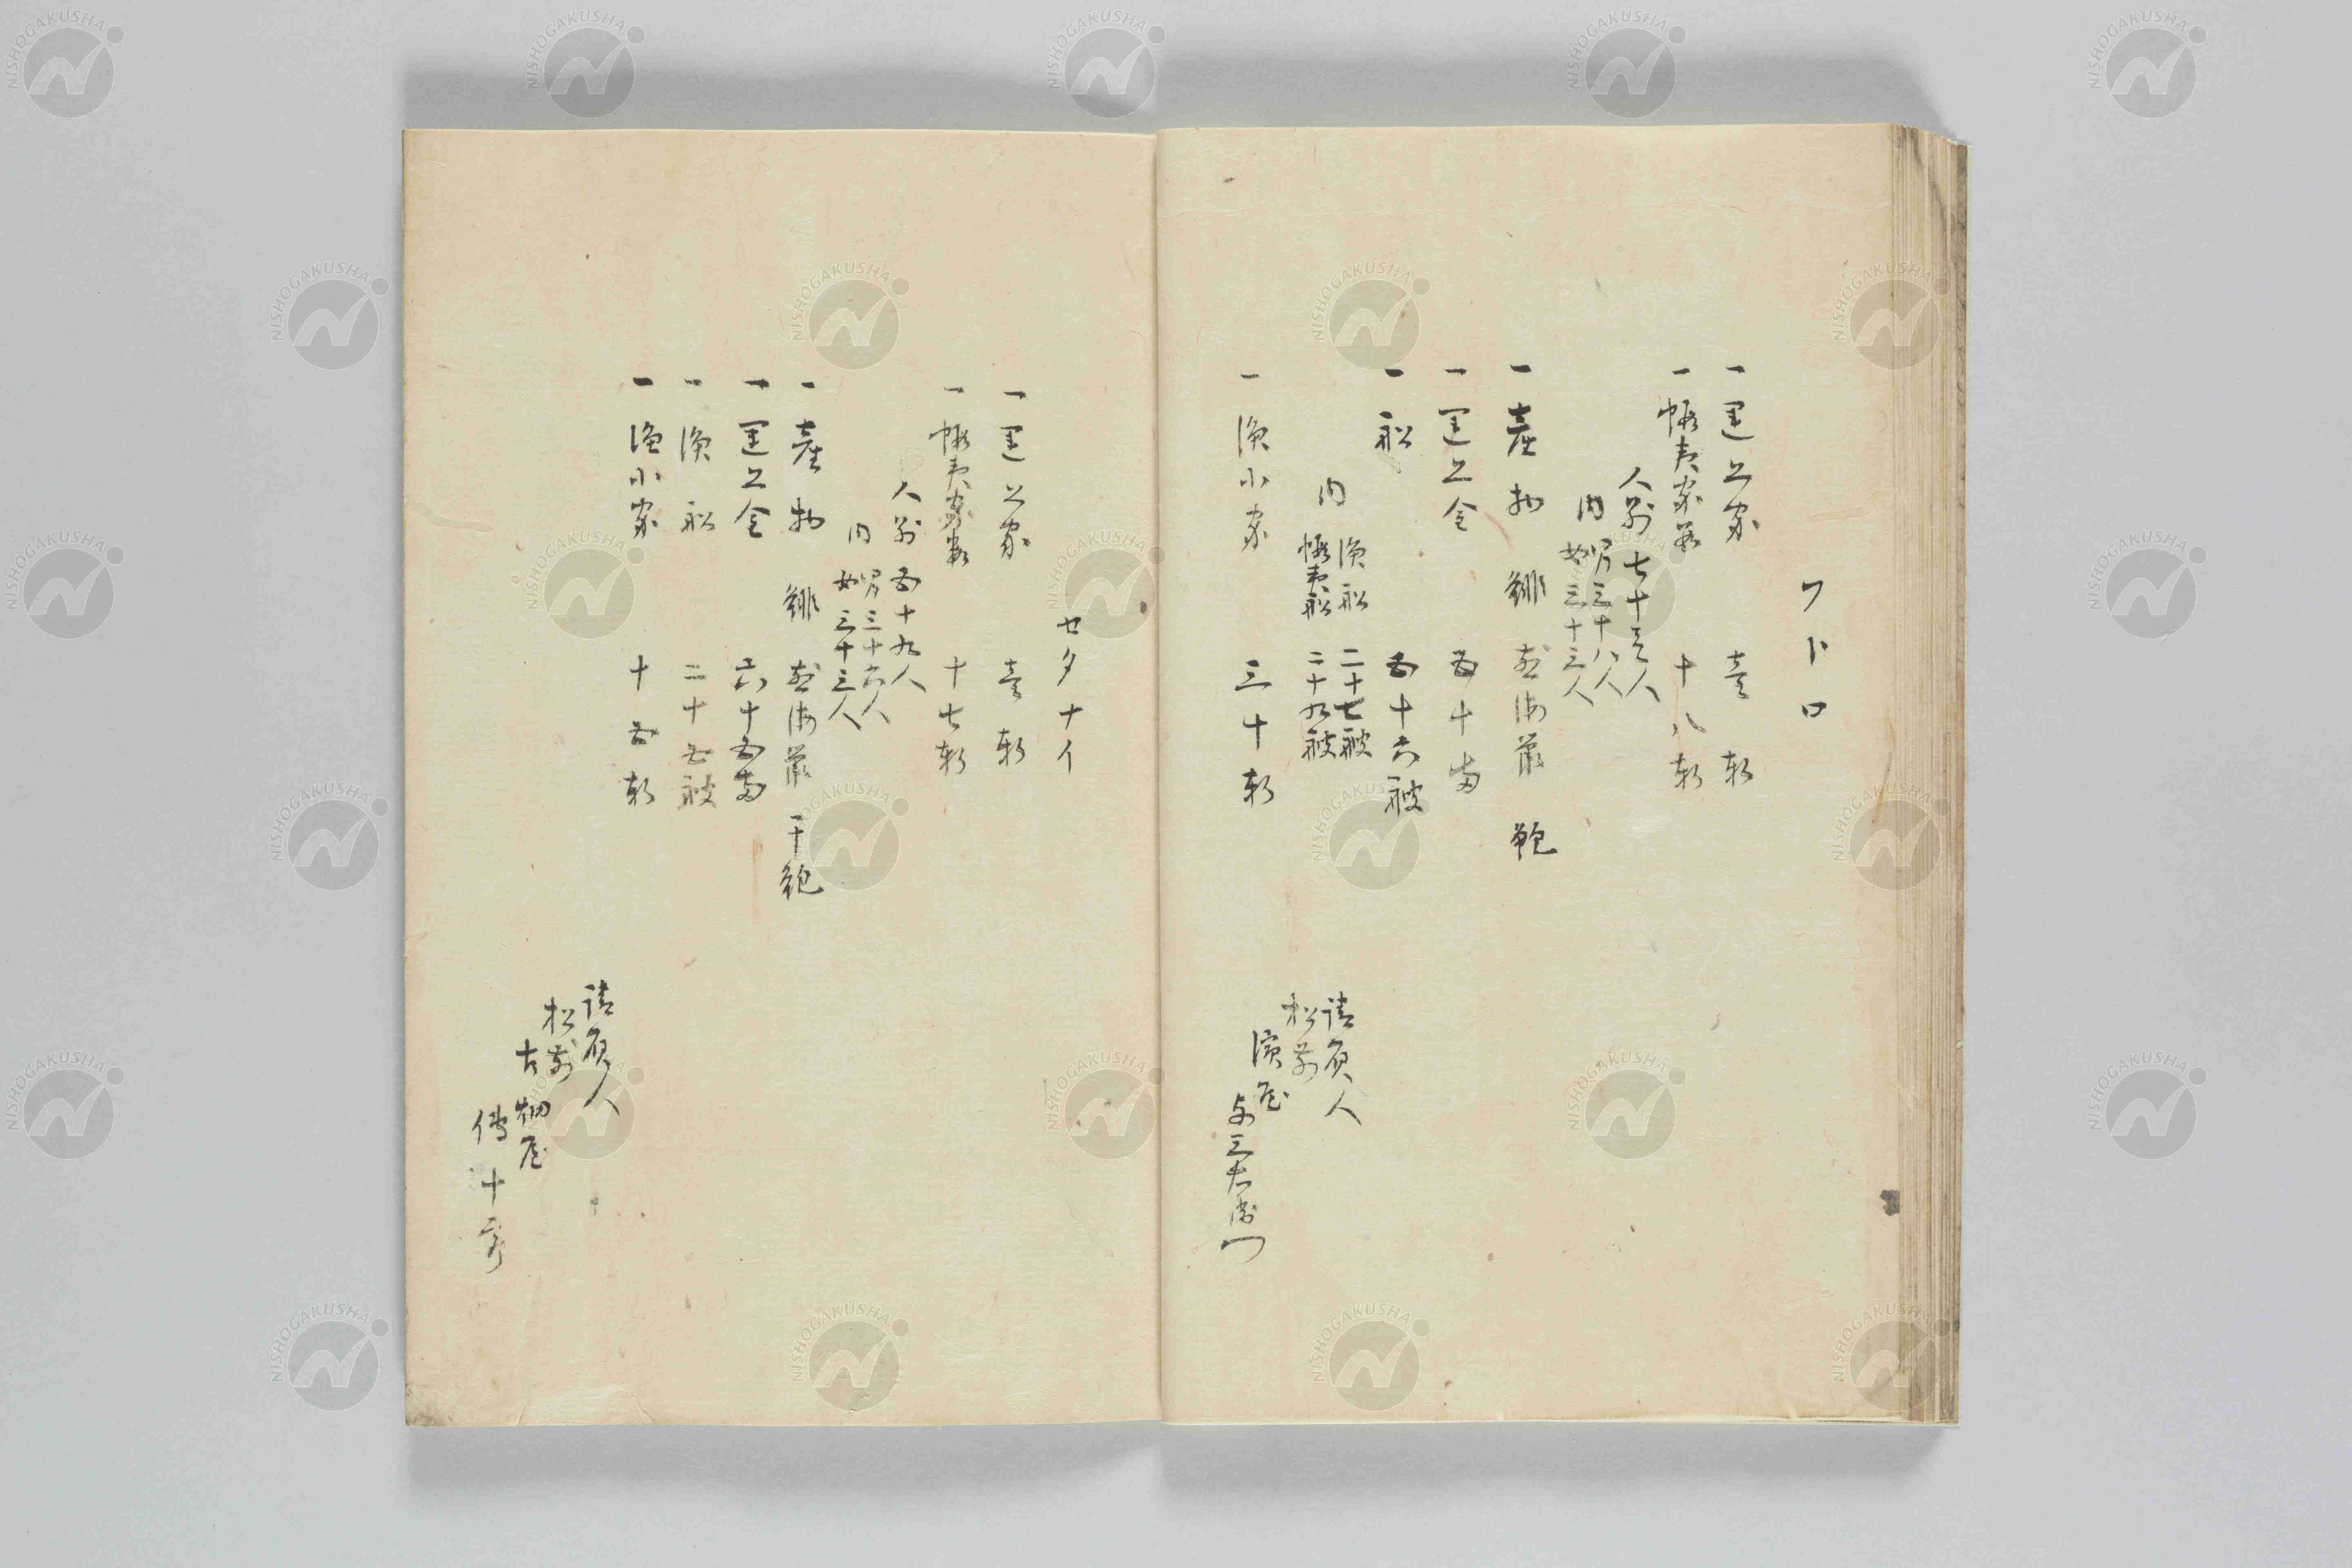 フトロ
一運上家 壱軒
一蝦夷家数 十八軒
人別七十壱人
内 男三十八人
女三十三人
一産物 鯡 海鼠 鮑
一運上金 五十両
一船 五十六艘
内 漁船 二十七艘
蝦夷船 二十九艘
一漁小家 三十軒
請負人
松前
濱屋
与三右衛門
セタナイ
一運上家 壱軒
一蝦夷家数 十七軒
人別 五十九人
内 男三十六人
女三十三人
一産物 鯡 海鼠 干鮑
一運上金 六十五両
一漁船 二十五艘
一漁小家 十五軒
請負人
松前
古畑屋
傳十郎
NISHOGAKUSHA